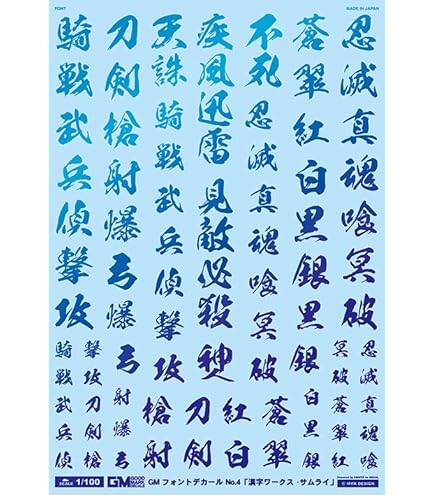 FONT
MADE IN JAPAN
忍滅真魂喰冥破
蒼翠紅白黒銀黒銀
不死忍滅真魂喰冥破
疾風迅雷見敵必殺神
天誅騎戦武兵偵撃攻
刀剣槍射爆弓爆弓
騎戦武兵偵撃攻
忍滅真魂喰
冥破蒼翠紅
白黒銀
蒼翠
紅白
刀剣
槍射
射爆弓
撃攻刀剣槍
騎戦武兵偵
SCALE 1/100 GM GMフォントデカール No.4「漢字ワークス・サムライ」
© HYK DESIGN